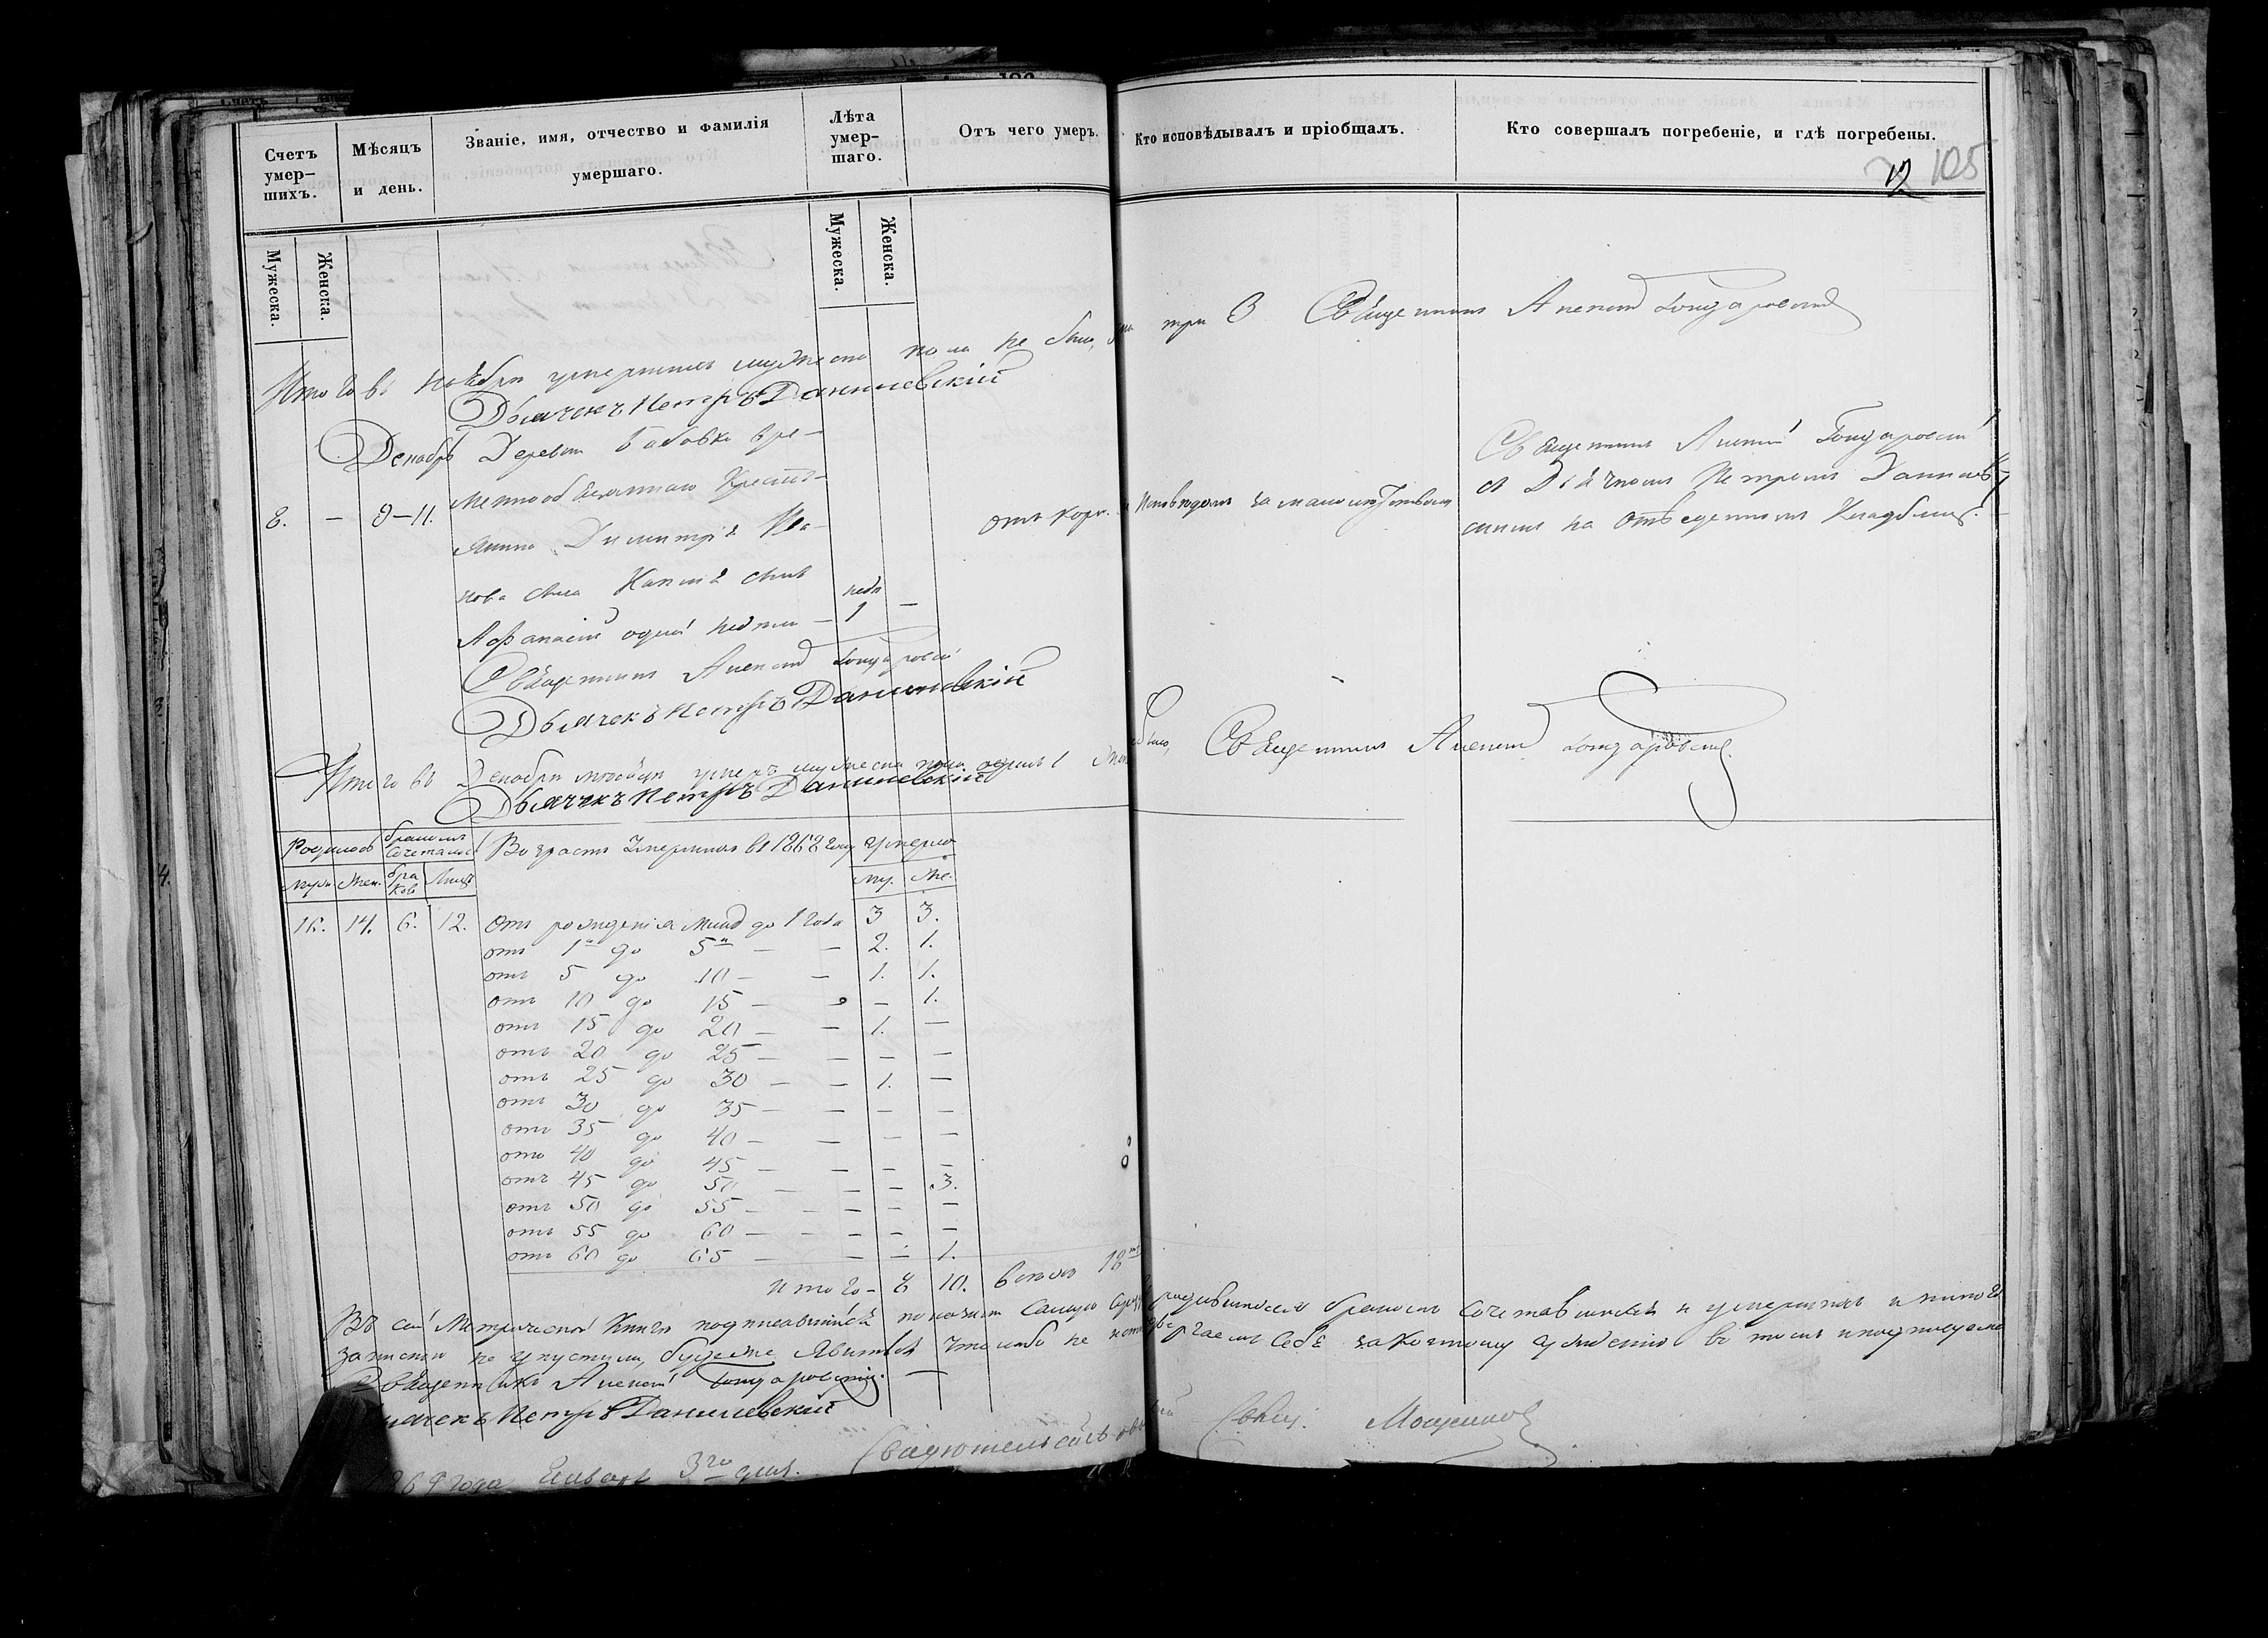 Счетъ умер-шихъ.
Мѣсяцъ и день.
Званіе, имя, отчество и фамилія умершаго.
Лѣта умер-шаго.
Отъ чего умеръ.
Кто исповѣдывалъ и пріобщалъ.
Кто совершалъ погребеніе, и гдѣ погребены.
105
Мужеска.
Женска.
Мужеска.
Женска.
Итого въ Ноябрѣ умершихъ мужеска пола не было, три 3 Священникъ
Дьячекъ Петръ Данилевскій
Декабрь Деревни Бабовка вре-
8. — 9-11. меннообязаннаго Крестья-
нина Димитрія Ива-
нова сына сынъ
Афанасій одной недели — недѣ 1 —
отъ кори.
за малолетствомъ
Священникъ
съ Дьячкомъ Петромъ Данилев-
скимъ на отведенномъ Кладбищѣ.
Священникъ
Дьячекъ Петръ Данилевскій
Итого въ Декабрѣ мѣсяцѣ умеръ мужеска пола одинъ 1 Священникъ
Дьячекъ Петръ Данилевскій
Родилось
бракомъ сочеталось
Возрастъ Умершихъ въ 1868 году
умерло
муж. Жен. бра ковъ Лицъ
му. Же.
16. 14. 6. 12. Отъ рожденія до 1 года 3 3.
отъ 1 до 5 — — 2. 1.
отъ 5 до 10 — — 1. 1.
отъ 10 до 15 — — 1.
отъ 15 до 20 — — 1. —
отъ 20 до 25 — — — —
отъ 25 до 30 — — 1. —
отъ 30 до 35 — — — —
отъ 35 до 40 — — — —
отъ 40 до 45 — — — —
отъ 45 до 50 — — — 3.
отъ 50 до 55 — — — —
отъ 55 до 60 — — — —
отъ 60 до 65 — — — 1.
итого — 8 10. всѣхъ 18
Въ сей Метрической Книге родившихся бракомъ сочетавшихся и умершихъ и никого
записать не упустили, буде же явится что либо не себѣ законному сужденію въ томъ и подписуемся
Священникъ
Дьячекъ Петръ Данилевскій
1869 года Января 3го дня. Свидѣтельствовалъ Свящ.